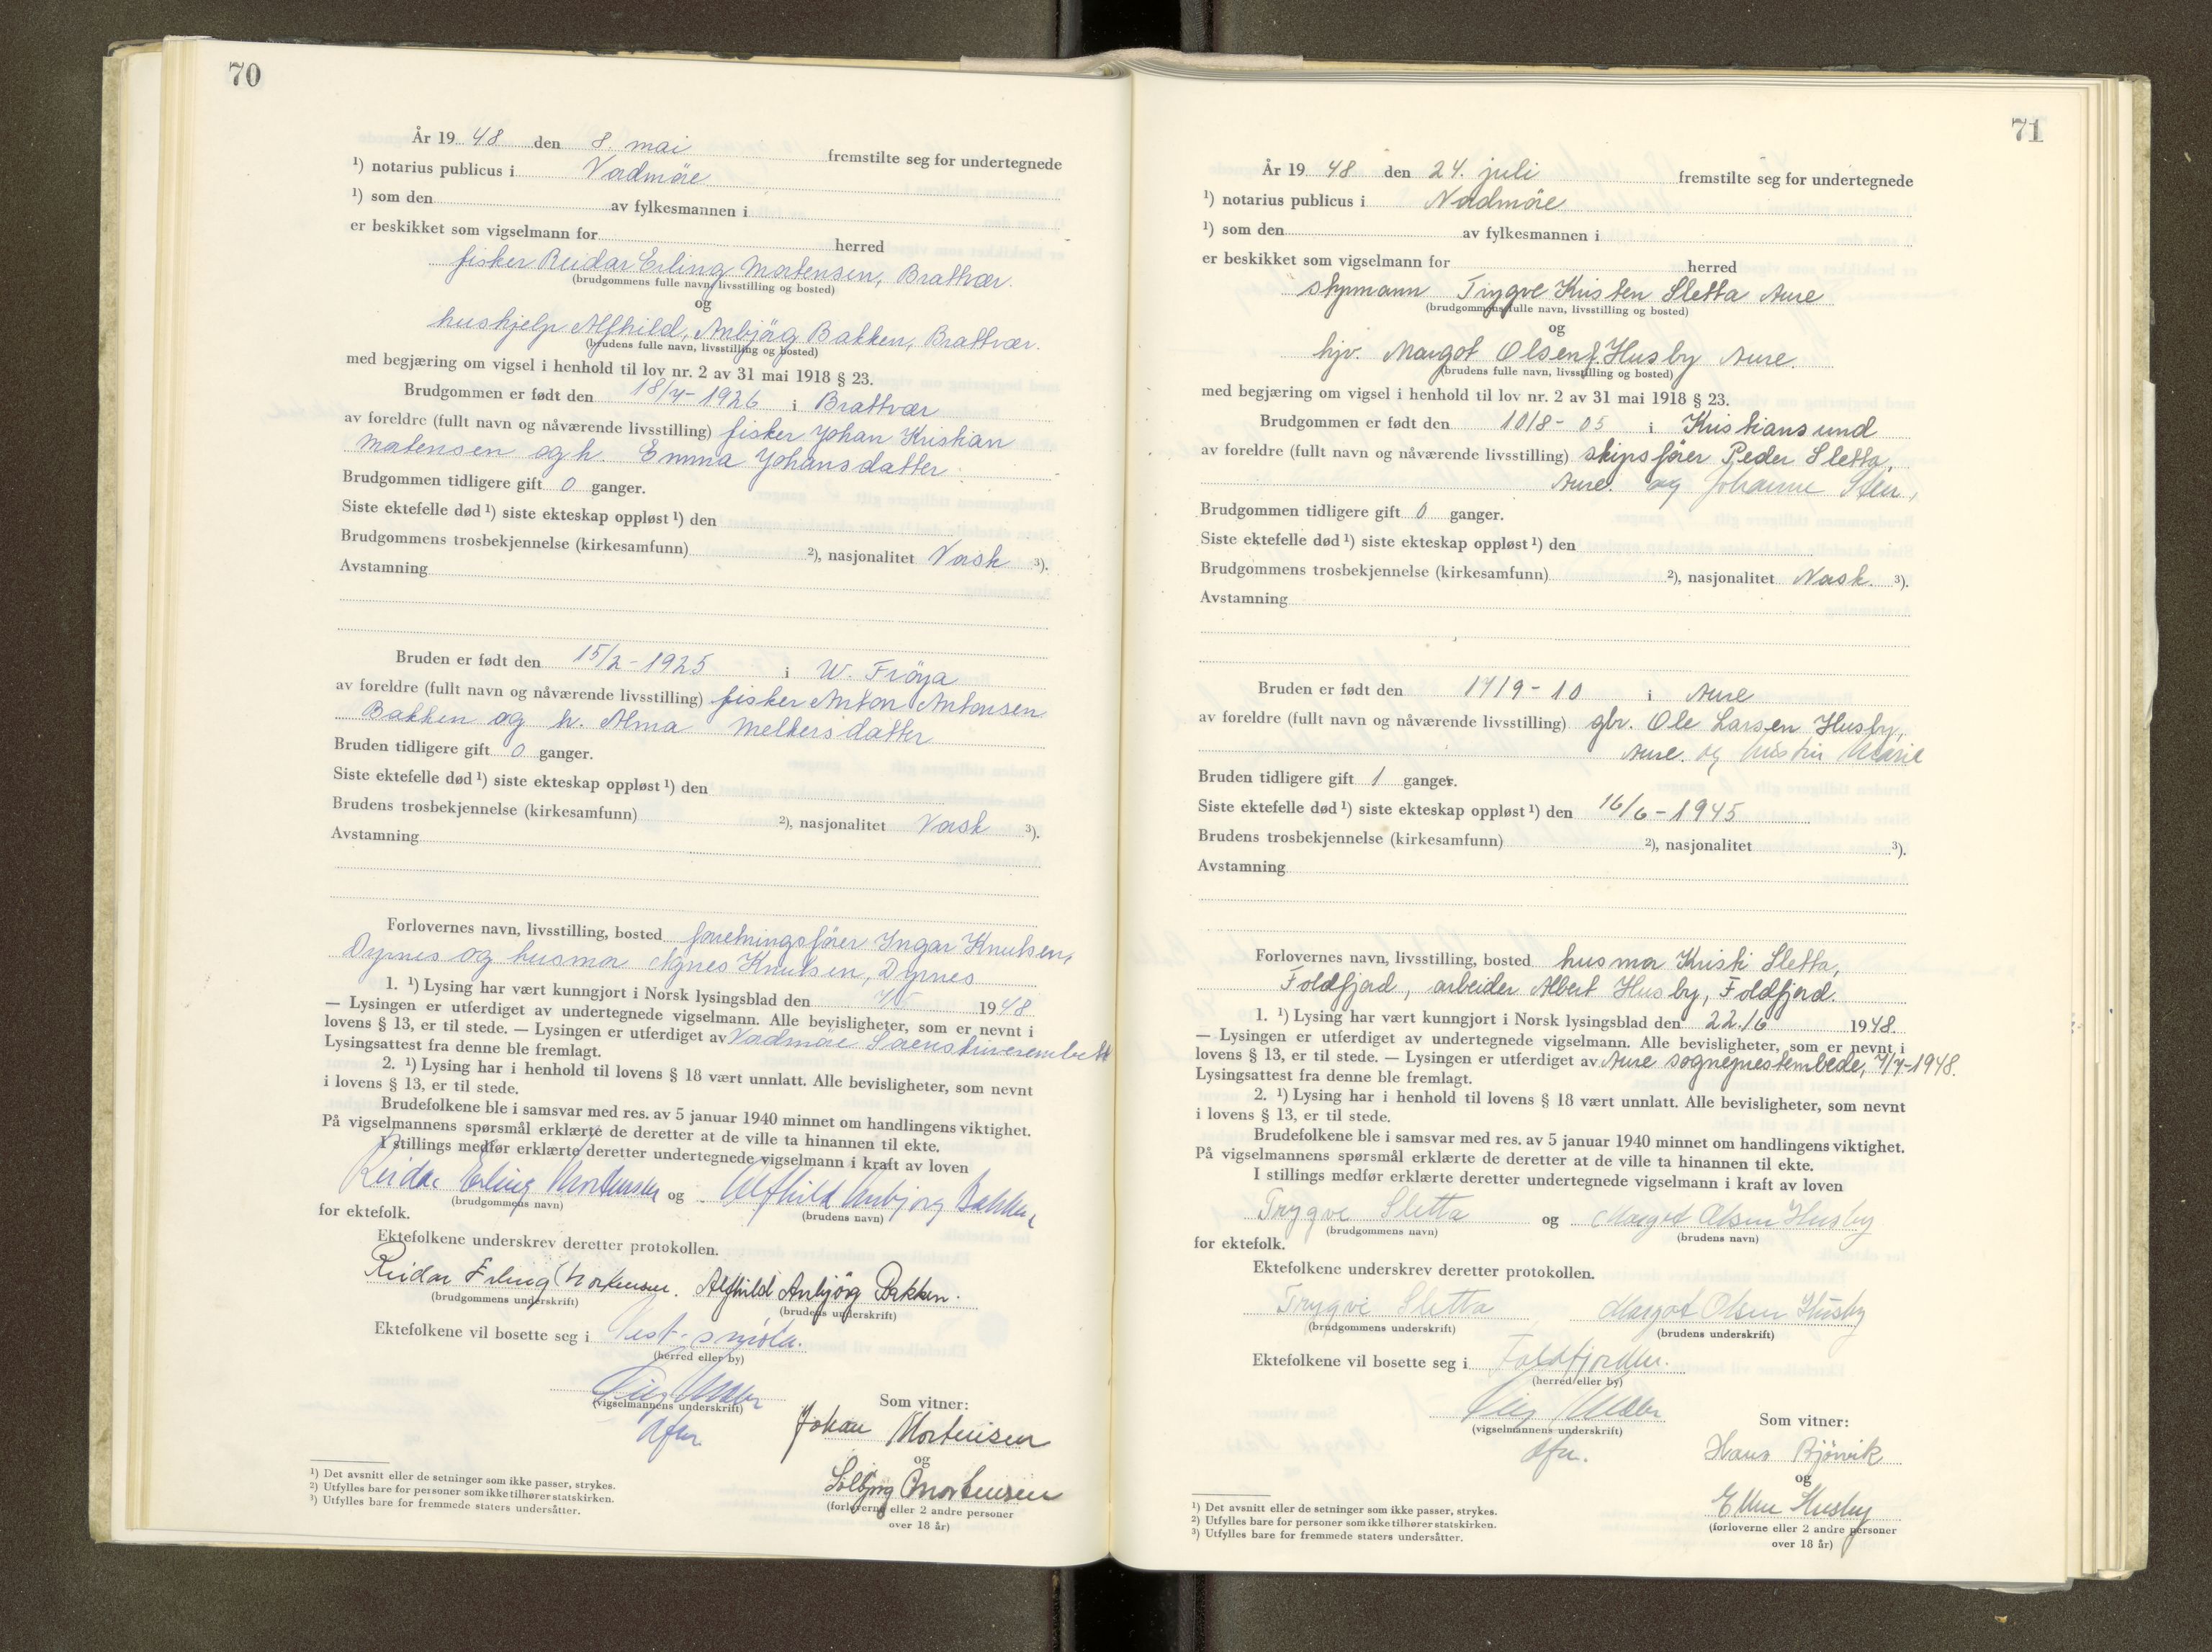 70
År 19 48 den 8. mai fremstilte seg for undertegnede
¹) notarius publicus i Nordmöre
¹) som den av fylkesmannen i
er beskikket som vigselmann for herred
fisker Reidar Erling Mortensen, Brattvær.
(brudgommens fulle navn, livsstilling og bosted)
og
hushjelp Alfhild, Anbjörg Bakken, Brattvær.
(brudens fulle navn, livsstilling og bosted)
med begjæring om vigsel i henhold til lov nr. 2 av 31 mai 1918 § 23.
Brudgommen er født den 18/4-1926 i Brattvær
av foreldre (fullt navn og nåværende livsstilling) fisker Johan Kristian
Mortensen og h. Emma Johansdatter
Brudgommen tidligere gift 0 ganger.
Siste ektefelle død ¹) siste ekteskap oppløst ¹) den
Brudgommens trosbekjennelse (kirkesamfunn) ²), nasjonalitet Norsk ³).
Avstamning
Bruden er født den 15/2-1925 i N. Fröya
av foreldre (fullt navn og nåværende livsstilling) fisker Anton Antonsen
Bakken og h. Alma Melkersdatter
Bruden tidligere gift 0 ganger.
Siste ektefelle død ¹) siste ekteskap oppløst ¹) den
Brudens trosbekjennelse (kirkesamfunn) ²), nasjonalitet Norsk ³).
Avstamning
Forlovernes navn, livsstilling, bosted forretningsförer Ingar Knutsen,
Dyrnes og husmor Agnes Knutsen, Dyrnes
1. ¹) Lysing har vært kunngjort i Norsk lysingsblad den 1948
— Lysingen er utferdiget av undertegnede vigselmann. Alle bevisligheter, som er nevnt i
lovens § 13, er til stede. — Lysingen er utferdiget av Nordmöre Sorenskriverembete
Lysingsattest fra denne ble fremlagt.
2. ¹) Lysing har i henhold til lovens § 18 vært unnlatt. Alle bevisligheter, som nevnt
i lovens § 13, er til stede.
Brudefolkene ble i samsvar med res. av 5 januar 1940 minnet om handlingens viktighet.
På vigselmannens spørsmål erklærte de deretter at de ville ta hinannen til ekte.
I stillings medfør erklærte deretter undertegnede vigselmann i kraft av loven
Reidar Erling Mortensen og Alfhild Anbjörg Bakken
(brudgommens navn) (brudens navn)
for ektefolk.
Ektefolkene underskrev deretter protokollen.
Reidar Erling Mortensen. Alfhild Anbjörg Bakken.
(brudgommens underskrift) (brudens underskrift)
Ektefolkene vil bosette seg i Vest-Smöla.
(herred eller by)
(vigselmannens underskrift)
Som vitner:
Johan Mortensen
og
Solbjörg Mortensen
(forloverne eller 2 andre personer
over 18 år)
¹) Det avsnitt eller de setninger som ikke passer, strykes.
²) Utfylles bare for personer som ikke tilhører statskirken.
³) Utfylles bare for fremmede staters undersåtter.
71
År 19 48 den 24. juli fremstilte seg for undertegnede
¹) notarius publicus i Nordmöre
¹) som den av fylkesmannen i
er beskikket som vigselmann for herred
styrmann Trygve Kristen Sletta Aure
(brudgommens fulle navn, livsstilling og bosted)
og
hjv. Margot Olsen f. Husby Aure.
(brudens fulle navn, livsstilling og bosted)
med begjæring om vigsel i henhold til lov nr. 2 av 31 mai 1918 § 23.
Brudgommen er født den 10/8-05 i Kristiansund
av foreldre (fullt navn og nåværende livsstilling) skipsförer Peder Sletta,
Aure. og Johanne
Brudgommen tidligere gift 0 ganger.
Siste ektefelle død ¹) siste ekteskap oppløst ¹) den
Brudgommens trosbekjennelse (kirkesamfunn) ²), nasjonalitet Norsk. ³).
Avstamning
Bruden er født den 17/9-10 i Aure
av foreldre (fullt navn og nåværende livsstilling) gbr. Ole Larsen Husby,
Aure. og Marie
Bruden tidligere gift 1 ganger.
Siste ektefelle død ¹) siste ekteskap oppløst ¹) den 16/6-1945
Brudens trosbekjennelse (kirkesamfunn) ²), nasjonalitet ³).
Avstamning
Forlovernes navn, livsstilling, bosted husmor Kristi Sletta,
Foldfjord, arbeider Albert Husby, Foldfjord.
1. ¹) Lysing har vært kunngjort i Norsk lysingsblad den 22./6 1948.
— Lysingen er utferdiget av undertegnede vigselmann. Alle bevisligheter, som er nevnt i
lovens § 13, er til stede. — Lysingen er utferdiget av Aure sogneprestembede, 7/7-1948.
Lysingsattest fra denne ble fremlagt.
2. ¹) Lysing har i henhold til lovens § 18 vært unnlatt. Alle bevisligheter, som nevnt
i lovens § 13, er til stede.
Brudefolkene ble i samsvar med res. av 5 januar 1940 minnet om handlingens viktighet.
På vigselmannens spørsmål erklærte de deretter at de ville ta hinannen til ekte.
I stillings medfør erklærte deretter undertegnede vigselmann i kraft av loven
Trygve Sletta og Margot Olsen Husby
(brudgommens navn) (brudens navn)
for ektefolk.
Ektefolkene underskrev deretter protokollen.
Trygve Sletta Margot Olsen Husby
(brudgommens underskrift) (brudens underskrift)
Ektefolkene vil bosette seg i Foldfjorden.
(herred eller by)
(vigselmannens underskrift)
Som vitner:
Hans Björvik
og
Ellen Husby
(forloverne eller 2 andre personer
over 18 år)
¹) Det avsnitt eller de setninger som ikke passer, strykes.
²) Utfylles bare for personer som ikke tilhører statskirken.
³) Utfylles bare for fremmede staters undersåtter.